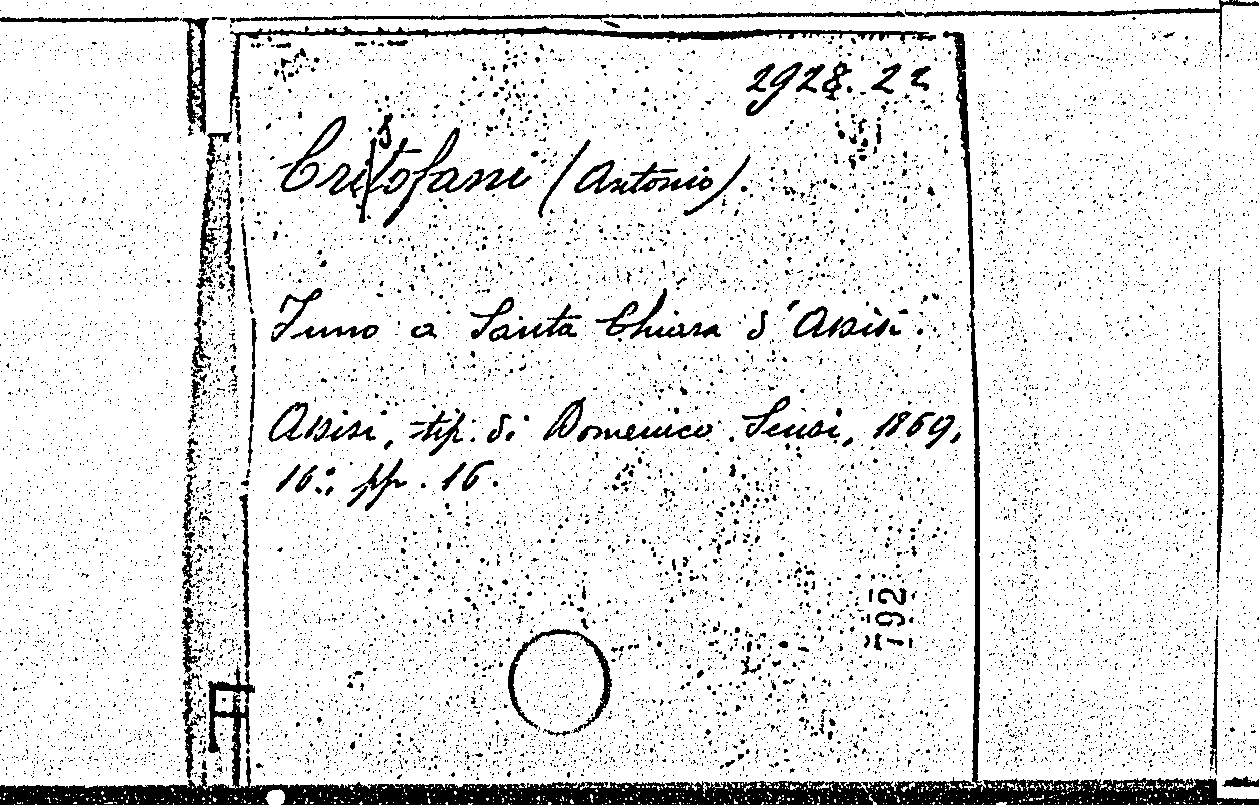 2928. 22
Cristofani (Antonio).
Inno a Santa Chiara d'Assisi.
Assisi, tip. di Domenico Sensi, 1869,
16.: pp. 16.
792